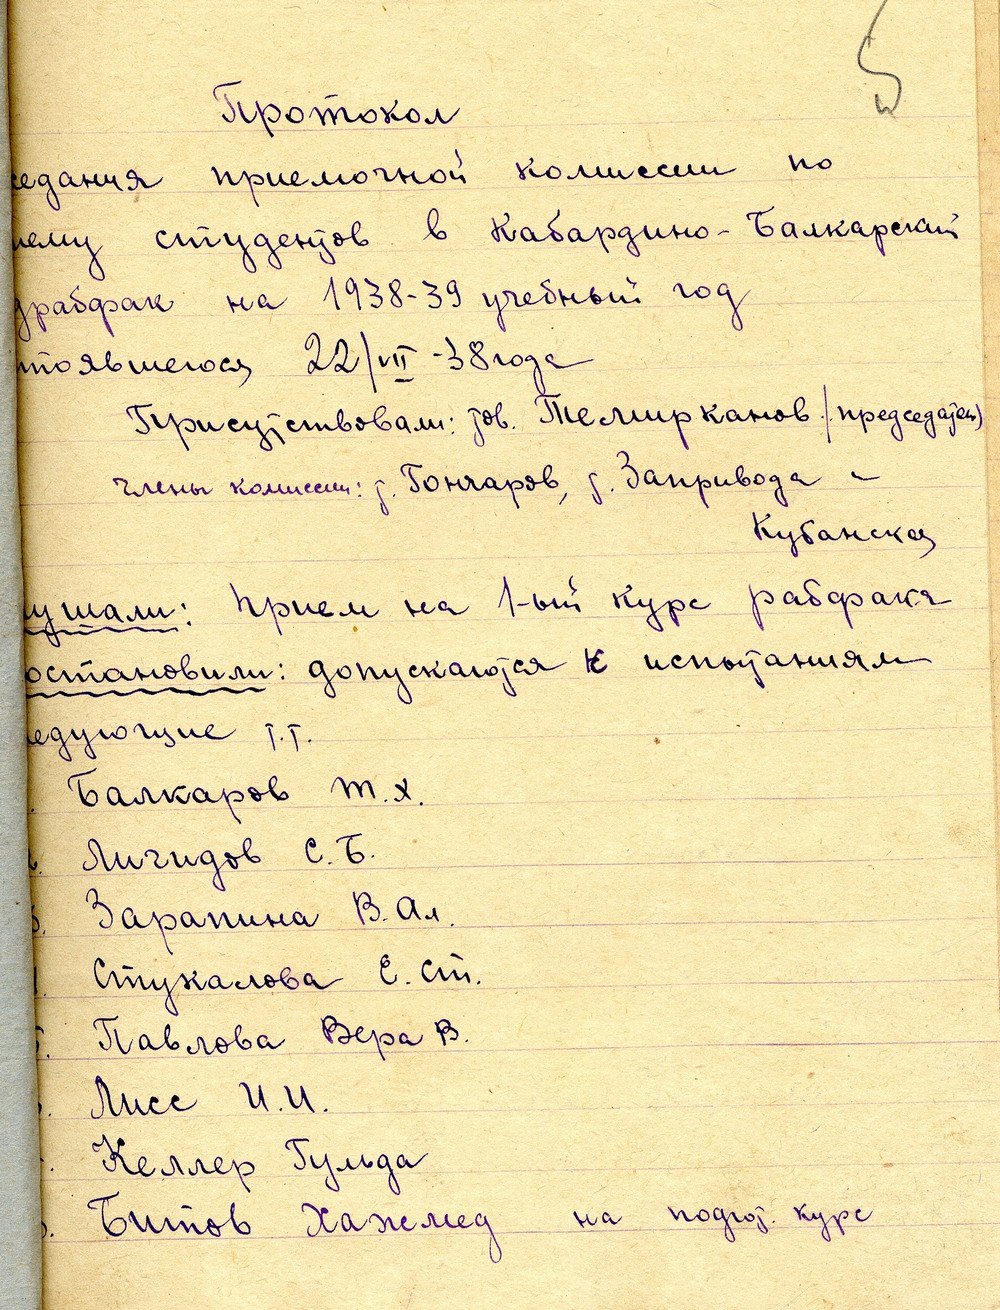 5
Протокол
седания приемочной комиссии по
иему студентов в Кабардино-Балкарский
драбфак на 1938-39 учебный год
стоявшегося 22/VII-38 года
Присутствовали: тов. Темирканов /председатель)
члены комиссии: т. Гончаров, т. Запривода и
Кубанская
ушали: Прием на 1-ый курс рабфака
остановили: допускаются к испытаниям
едующие т.т.
Балкаров Т.Х.
2. Личидов С.Б.
3. Зарапина В.Ал.
4. Стукалова Е.Ст.
5. Павлова Вера В.
6. Лисс И.И.
Келлер Гульда
8. Битов Хажмед на подгот. курс